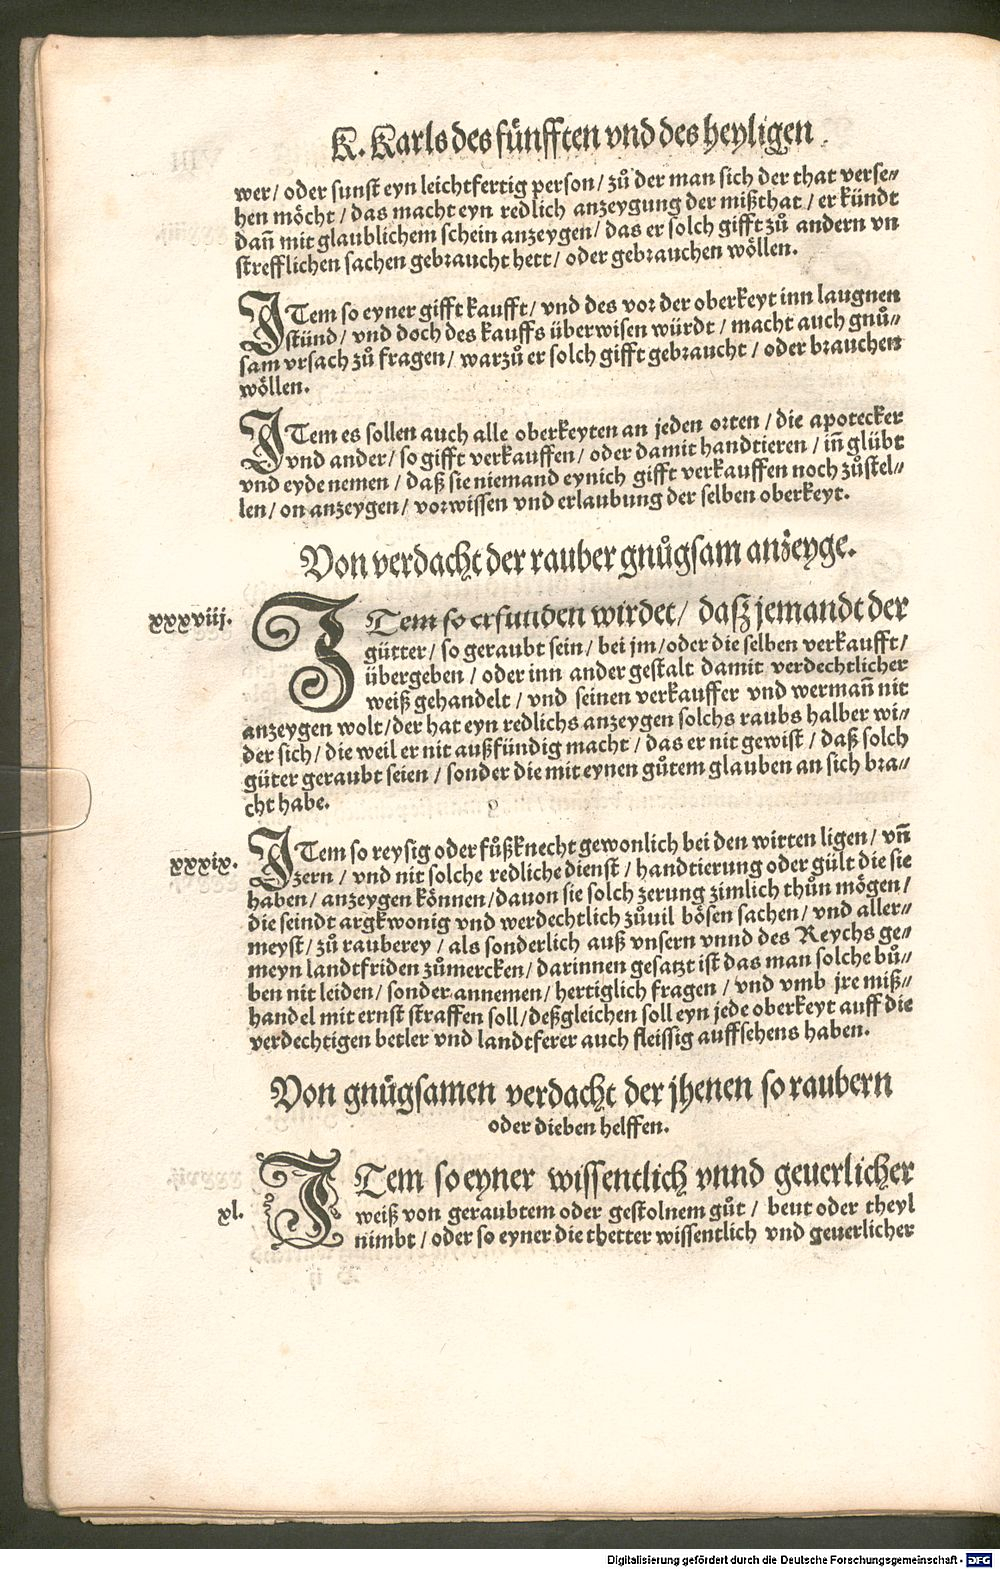 K. Karls des fünfften vnd des heyligen
wer/ oder sunst eyn leichtfertig person/ zů der man sich der that verse⸗
hen möcht/ das macht eyn redlich anzeygung der mißthat/ er kündt
dañ mit glaublichem schein anzeygen/ das er solch gifft zů andern vn
strefflichen sachen gebraucht hett/ oder gebrauchen wöllen.
ITem so eyner gifft kaufft/ vnd des vor der oberkeyt inn laugnen
stünd/ vnd doch des kauffs überwisen würdt/ macht auch gnů⸗
sam vrsach zů fragen/ warzů er solch gifft gebraucht/ oder brauchen
wöllen.
ITem es sollen auch alle oberkeyten an jeden orten/ die apotecker
vnd ander/ so gifft verkauffen/ oder damit handtieren/ iñ glübt
vnd eyde nemen/ daß sie niemand eynich gifft verkauffen noch zůstel⸗
len/ on anzeygen/ vorwissen vnd erlaubung der selben oberkeyt.
Von verdacht der rauber gnůgsam anzeyge.
xxxviij.
ITem so erfunden wirdet/ daß jemandt der
gütter/ so geraubt sein/ bei jm/ oder die selben verkaufft/
übergeben/ oder inn ander gestalt damit verdechtlicher
weiß gehandelt/ vnd seinen verkauffer vnd wermañ nit
anzeygen wolt/ der hat eyn redlichs anzeygen solchs raubs halber wi⸗
der sich/ die weil er nit außfündig macht/ das er nit gewist/ daß solch
güter geraubt seien/ sonder die mit eynen gůtem glauben an sich bra⸗
cht habe.
xxxix.
ITem so reysig oder fůßknecht gewonlich bei den wirten ligen/ vñ
zern/ vnd nit solche redliche dienst/ handtierung oder gült die sie
haben/ anzeygen können/ dauon sie solch zerung zimlich thůn mögen/
die seindt argkwonig vnd werdechtlich zůuil bösen sachen/ vnd aller⸗
meyst/ zů rauberey/ als sonderlich auß vnsern vnnd des Reychs ge⸗
meyn landtfriden zůmercken/ darinnen gesatzt ist das man solche bů⸗
ben nit leiden/ sonder annemen/ hertiglich fragen/ vnd vmb jre miß⸗
handel mit ernst straffen soll/ deßgleichen soll eyn jede oberkeyt auff die
verdechtigen betler vnd landtferer auch fleissig auffsehens haben.
Von gnůgsamen verdacht der jhenen so raubern
oder dieben helffen.
xl.
ITem so eyner wissentlich vnnd geuerlicher
weiß von geraubtem oder gestolnem gůt/ beut oder theyl
nimbt/ oder so eyner die thetter wissentlich vnd geuerlicher
Digitalisierung gefördert durch die Deutsche Forschungsgemeinschaft - DFG